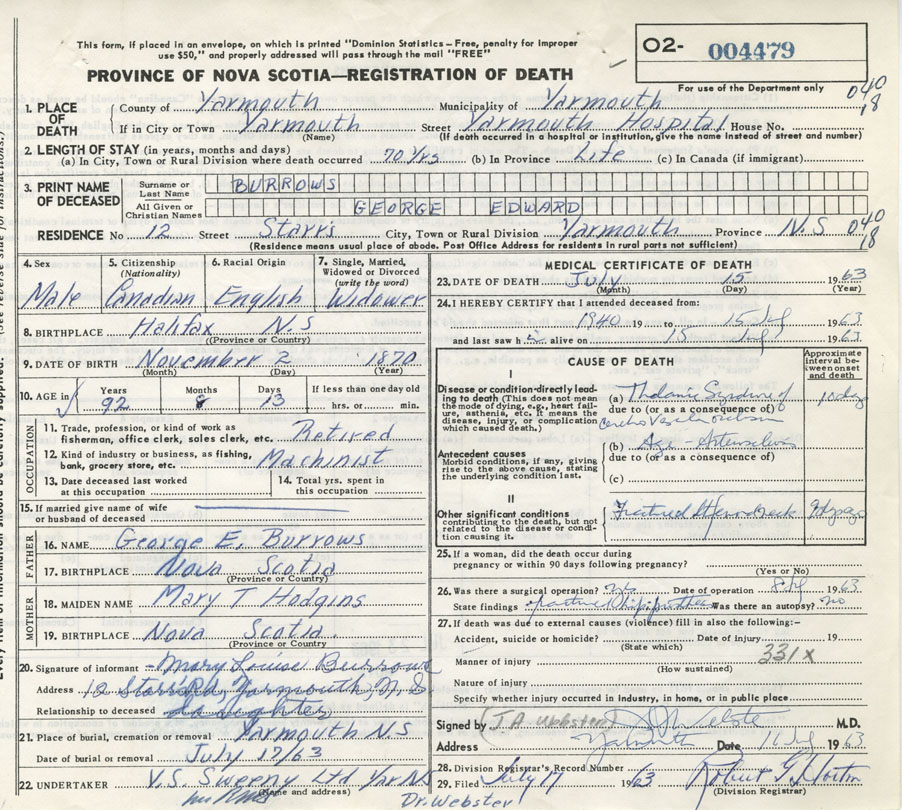 This form, if placed in an envelope, on which is printed "Dominion Statistics – Free, penalty for improper
use $50," and properly addressed will pass through the mail "FREE"
PROVINCE OF NOVA SCOTIA—REGISTRATION OF DEATH
O2- 004479
For use of the Department only
040
18
1. PLACE OF DEATH
County of Yarmouth Municipality of Yarmouth
If in City or Town Yarmouth Street Yarmouth Hospital House No.
(Name) (If death occurred in a hospital or institution, give the name instead of street and number)
2. LENGTH OF STAY (in years, months and days)
(a) In City, Town or Rural Division where death occurred 70 Yrs (b) In Province Life (c) In Canada (if immigrant)
3. PRINT NAME OF DECEASED
Surname or Last Name BURROWS
All Given or Christian Names GEORGE EDWARD
RESIDENCE No 12 Street Starrs City, Town or Rural Division Yarmouth Province N.S
040
18
(Residence means usual place of abode. Post Office Address for residents in rural parts not sufficient)
4. Sex Male
5. Citizenship (Nationality) Canadian
6. Racial Origin English
7. Single, Married, Widowed or Divorced (write the word) Widower
8. BIRTHPLACE Halifax N.S
(Province or Country)
9. DATE OF BIRTH November 2 1870
(Month) (Day) (Year)
10. AGE in Years 92 Months 8 Days 13 If less than one day old hrs. or min.
OCCUPATION
11. Trade, profession, or kind of work as fisherman, office clerk, sales clerk, etc. Retired
12. Kind of industry or business, as fishing, bank, grocery store, etc. Machinist
13. Date deceased last worked at this occupation
14. Total yrs. spent in this occupation
15. If married give name of wife or husband of deceased
FATHER
16. NAME George E. Burrows
17. BIRTHPLACE Nova Scotia
(Province or Country)
MOTHER
18. MAIDEN NAME Mary T Hodgins
19. BIRTHPLACE Nova Scotia.
(Province or Country)
20. Signature of informant Mary Louise Burrows
Address 12 Starrs Rd, Yarmouth, N.S.
Relationship to deceased Daughter
21. Place of burial, cremation or removal Yarmouth N S
Date of burial or removal July 17/63
22. UNDERTAKER V.S. Sweeny Ltd Yar N S
(Name and address)
Dr. Webster
MEDICAL CERTIFICATE OF DEATH
23. DATE OF DEATH July 15 1963
(Month) (Day) (Year)
24. I HEREBY CERTIFY that I attended deceased from:
1940 19 to 15 July 1963
and last saw h alive on 15 July 1963
CAUSE OF DEATH
Approximate interval between onset and death
I
Disease or condition directly leading to death (This does not mean the mode of dying, e.g., heart failure, asthenia, etc. It means the disease, injury, or complication which caused death.)
(a)
due to (or as a consequence of)
Antecedent causes
Morbid conditions, if any, giving rise to the above cause, stating the underlying condition last.
(b) Age -
due to (or as a consequence of)
(c)
II
Other significant conditions contributing to the death, but not related to the disease or condition causing it.
Fractured
25. If a woman, did the death occur during pregnancy or within 90 days following pregnancy?
(Yes or No)
26. Was there a surgical operation? Date of operation 8 July 1963
State findings Was there an autopsy? no
27. If death was due to external causes (violence) fill in also the following:-
Accident, suicide or homicide? Date of injury 19
(State which)
Manner of injury 331x
(How sustained)
Nature of injury
Specify whether injury occurred in industry, in home, or in public place
Signed by J.A. Webster M.D.
Address Yarmouth Date 16 July 1963
28. Division Registrar's Record Number
29. Filed July 17 1963 Robert G. Horton
(Division Registrar)